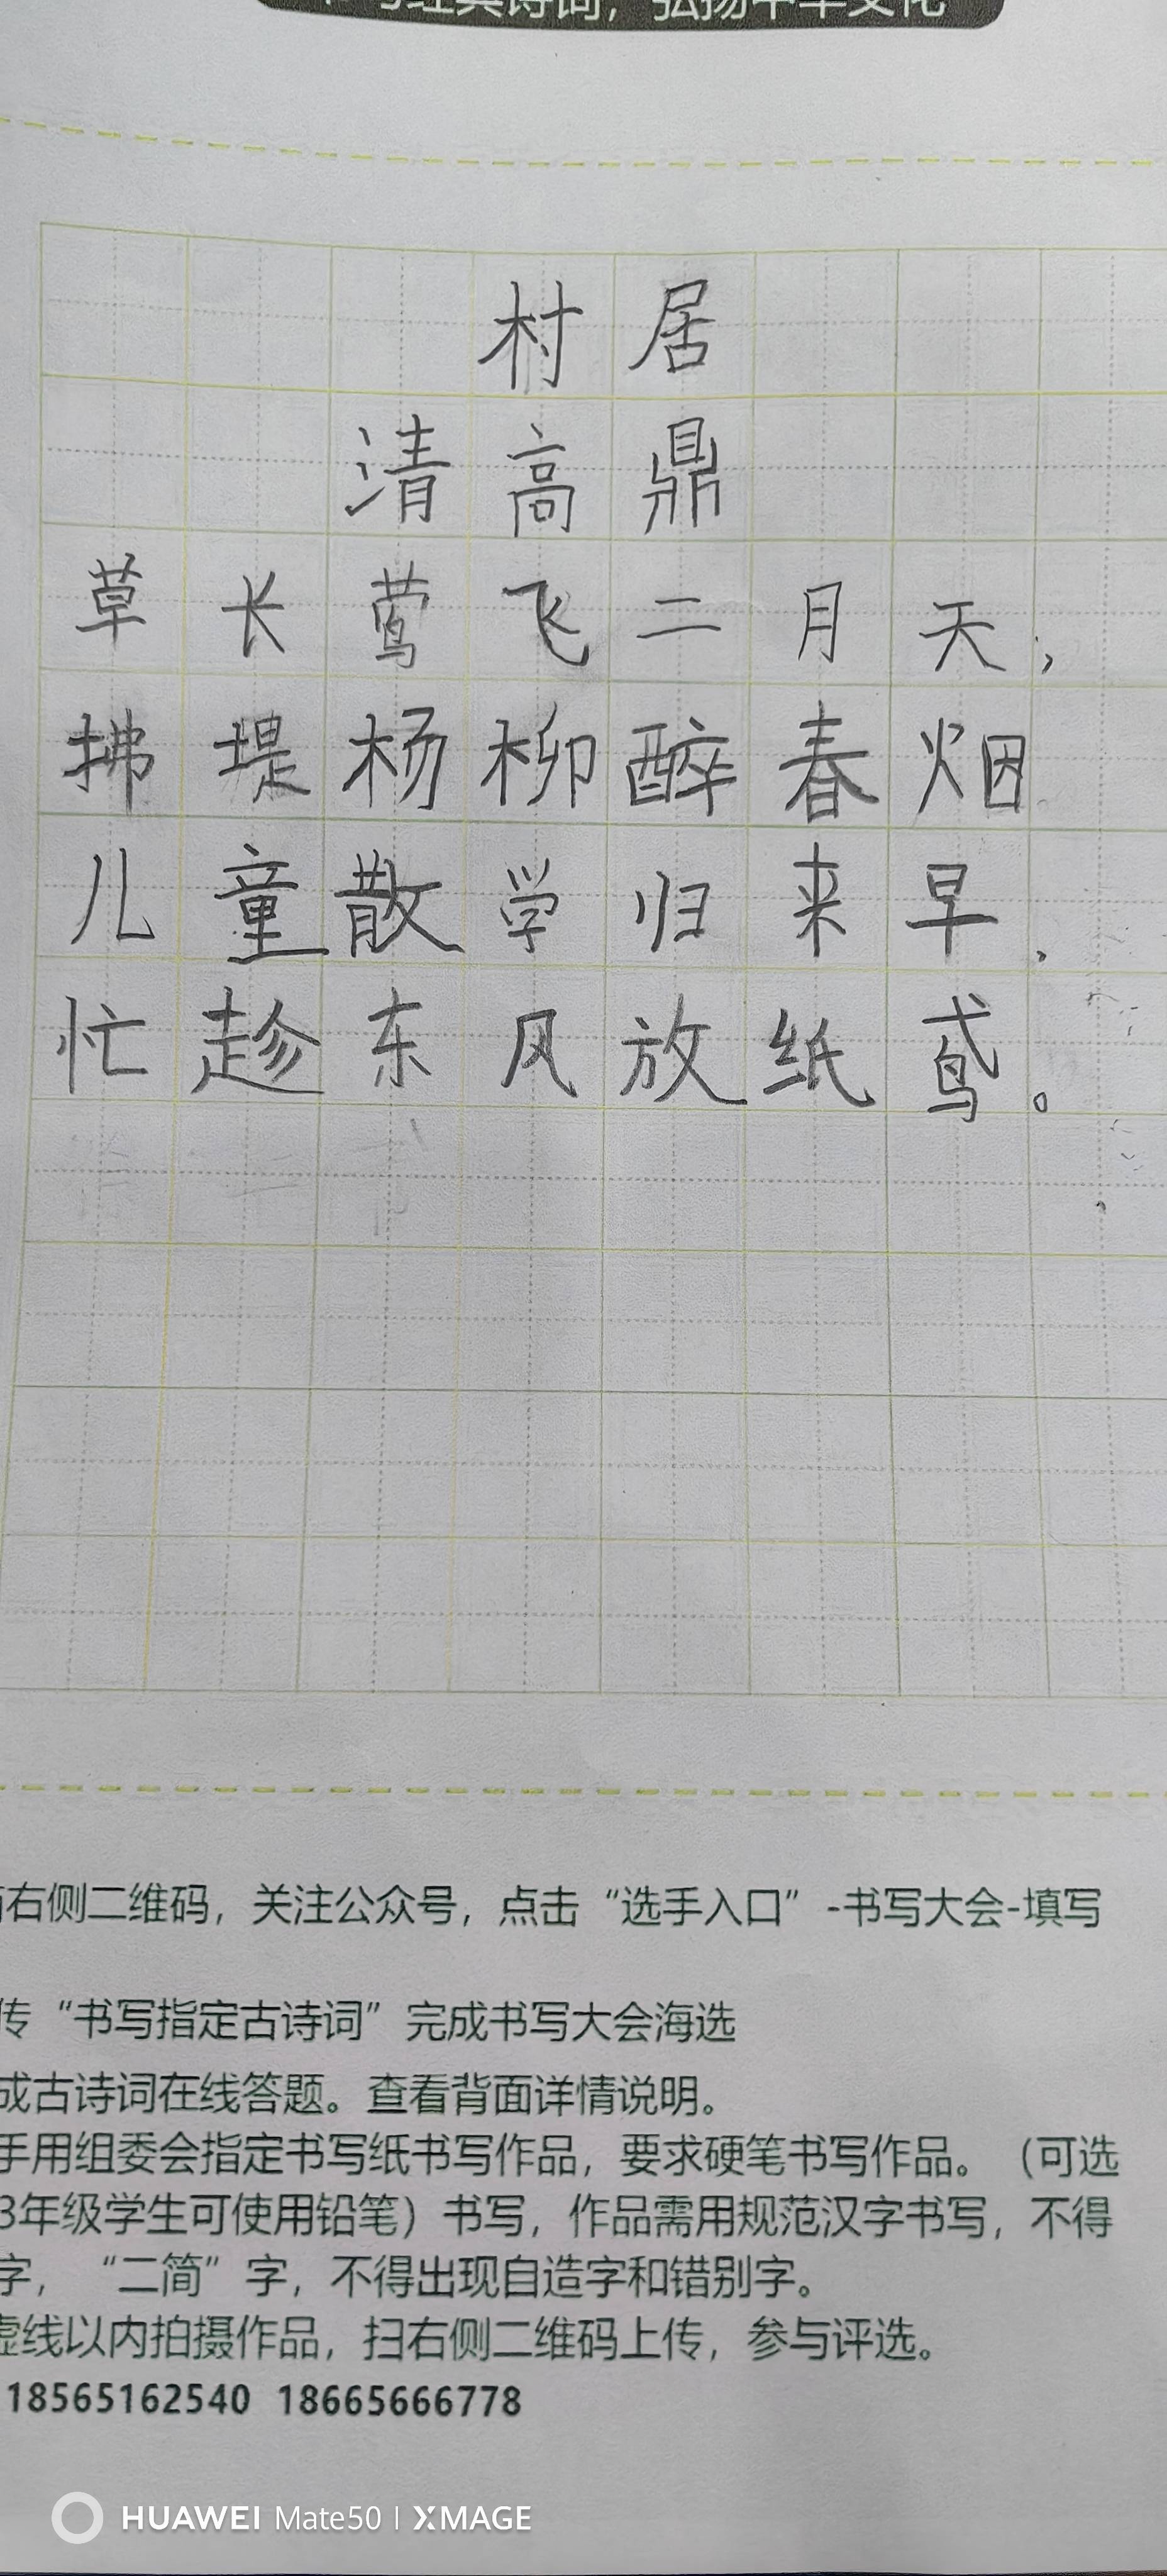 书写经典诗词，弘扬中华文化
村居
清高鼎
草长莺飞二月天，
拂堤杨柳醉春烟
儿童散学归来早，
忙趁东风放纸鸢。
右侧二维码，关注公众号，点击“选手入口”-书写大会-填写
传“书写指定古诗词”完成书写大会海选
成古诗词在线答题。查看背面详情说明。
手用组委会指定书写纸书写作品，要求硬笔书写作品。（可选
3年级学生可使用铅笔）书写，作品需用规范汉字书写，不得
字，“二简”字，不得出现自造字和错别字。
虚线以内拍摄作品，扫右侧二维码上传，参与评选。
18565162540 18665666778
HUAWEI Mate50 | XMAGE